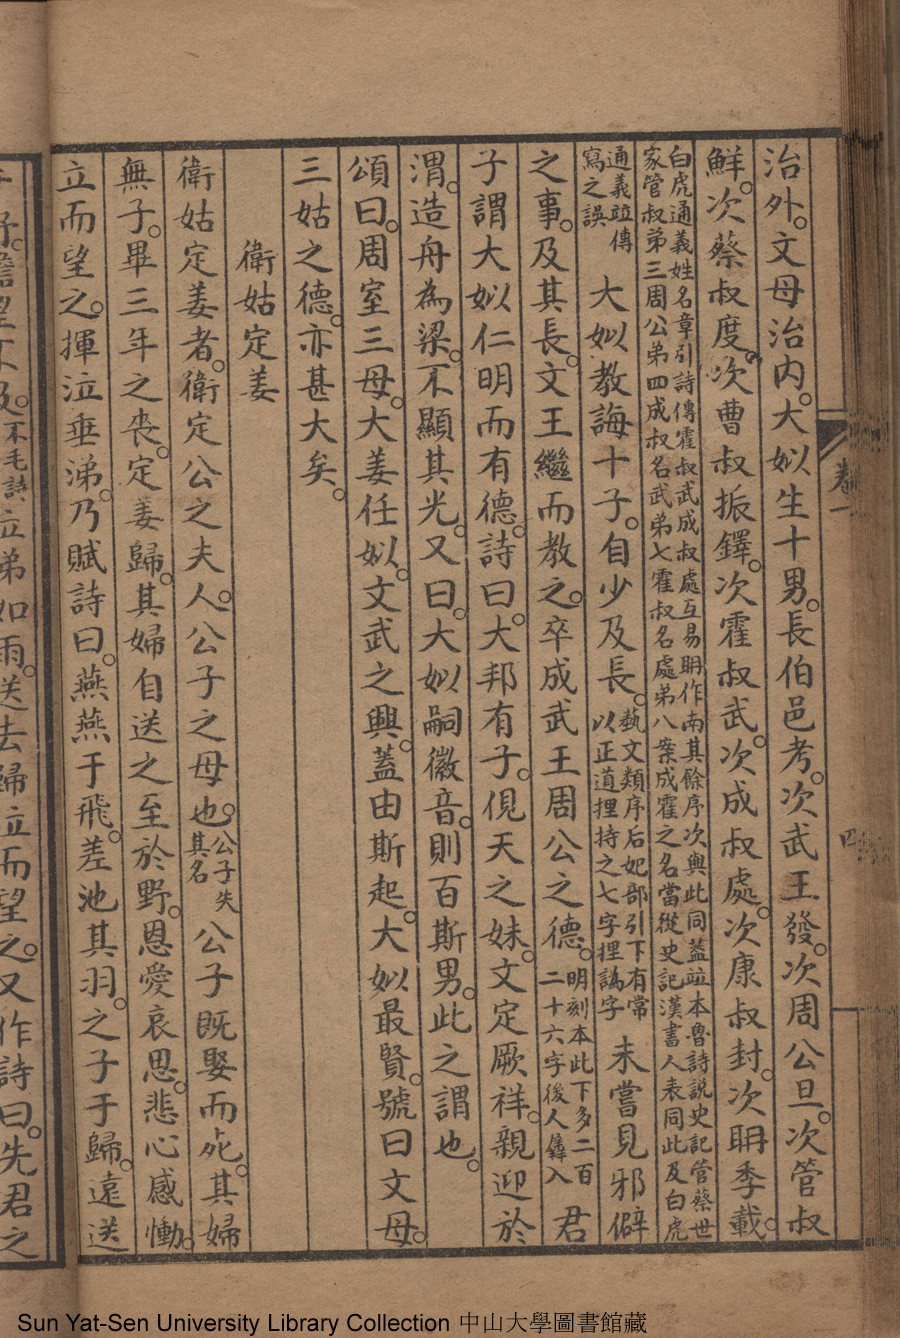 治外。文母治內。大姒生十男。長伯邑考。次武王發。次周公旦。次管叔
鮮。次蔡叔度。次曹叔振鐸。次霍叔武。次成叔處。次康叔封。次聃季載。
白虎通義姓名章引詩傳霍叔武成叔處互易聃作南其餘序次與此同蓋竝本魯詩說史記管蔡世
家管叔弟三周公弟四成叔名武弟七霍叔名處弟八案成霍之名當從史記漢書人表同此及白虎
通義竝傳
寫之誤
大姒教誨十子。自少及長。
埶文類序后妃部引下有常
以正道捚持之七字捚譌字
未嘗見邪僻
之事。及其長。文王繼而教之。卒成武王周公之德。
明刻本此下多二百
二十六字後人羼入
君
子謂大姒仁明而有德。詩曰。大邦有子。俔天之妹。文定厥祥。親迎於
渭。造舟為梁。不顯其光。又曰。大姒嗣徽音。則百斯男。此之謂也。
頌曰。周室三母。大姜任姒。文武之興。蓋由斯起。大姒最賢。號曰文母。
三姑之德。亦甚大矣。
衛姑定姜
衛姑定姜者。衛定公之夫人。公子之母也。
公子失
其名
公子既娶而死。其婦
無子。畢三年之喪。定姜歸。其婦自送之至於野。恩愛哀思。悲心感慟。
立而望之。揮泣垂涕。乃賦詩曰。燕燕于飛。差池其羽。之子于歸。遠送
及。
不毛詩
泣弟如雨。送去歸泣而望之。又作詩曰。先君之
卷一
四
Sun Yat-Sen University Library Collection 中山大學圖書館藏